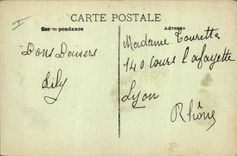 CARTE POSTALE
Correspondance
Adresse
Bons Baisers
Lily
Madame Touretta
140 Cours Lafayette
Lyon
Rhône